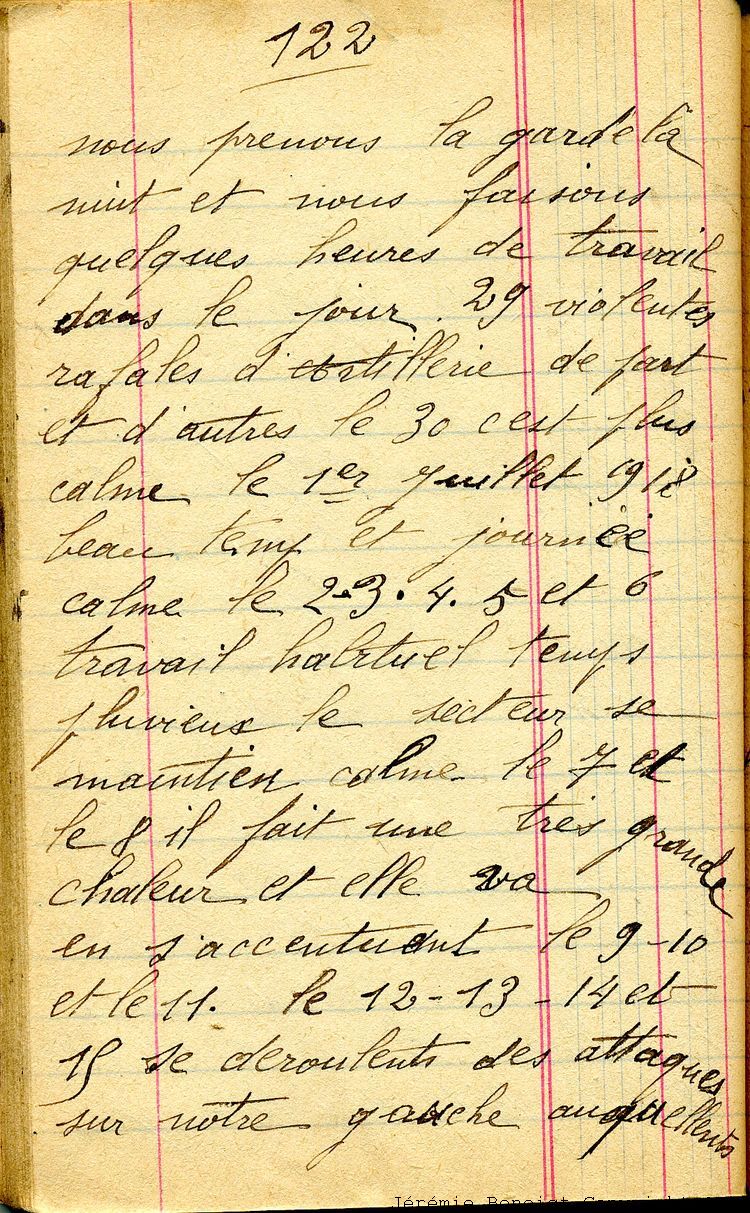 122
nous prenons la garde la
nuit et nous faisons
quelques heures de travail
dans le jour. 29 violentes
rafales d'artillerie de part
et d'autres le 30 c'est plus
calme le 1er Juillet 1918
beau temp et journée
calme le 2-3. 4. 5 et 6
travail habituel temps
pluvieux le secteur se
maintien calme le 7 et
le 8 il fait une très grande
chaleur et elle va
en s'accentuant le 9-10
et le 11. le 12-13-14 et
15 se deroulents des attaques
sur notre gauche auquellents
Jérémie Benoist Copyright